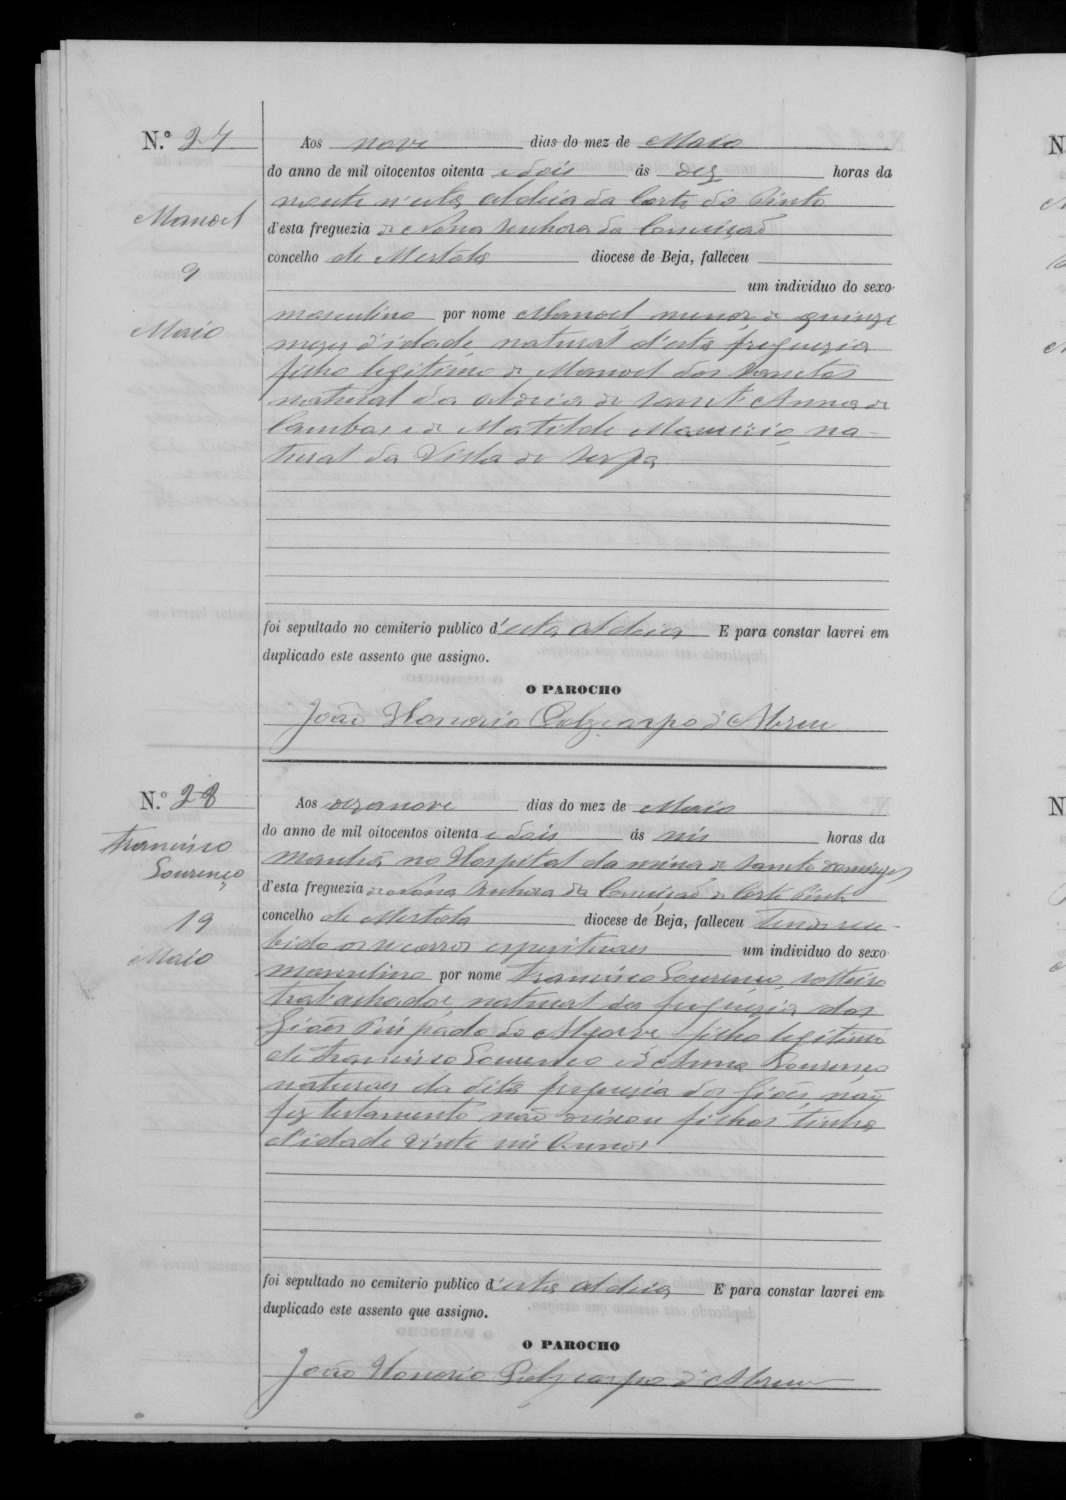 N.º 27
Manoel
9
Maio
Aos nove dias do mez de Maio
do anno de mil oitocentos oitenta e dois ás dez horas da
noute n'esta aldeia da Corte do Pinto
d'esta freguezia de Nossa Senhora da Conceição
concelho de Mertola diocese de Beja, falleceu
um individuo do sexo
masculino por nome Manoel, menor de quinze
mezes d'idade, natural d'esta freguezia
filho legitimo de Manoel dos Santos
natural da aldeia de Sant'Anna de
Cambas e de Matilde Mauricio, na-
tural da Villa de Serpa
foi sepultado no cemiterio publico d'esta aldeia E para constar lavrei em
duplicado este assento que assigno.
O PAROCHO
João Honorio Polycarpo d'Abreu
N.º 28
Francisco
Lourenço
19
Maio
Aos dezanove dias do mez de Maio
do anno de mil oitocentos oitenta e dois ás seis horas da
manhã no Hospital da mina de Santo Domingos
d'esta freguezia de Nossa Senhora da Conceição de Corte Pinto
concelho de Mertola diocese de Beja, falleceu tendo rece-
bido os socorros espirituaes um individuo do sexo
masculino por nome Francisco Lourenço, solteiro
trabalhador, natural da freguezia dos
Giões Bispado do Algarve filho legitimo
de Francisco Lourenço e d'Anna Lourenço
naturaes da dita freguezia dos Giões, não
fez testamento não deixou filhos tinha
d'idade vinte seis annos
foi sepultado no cemiterio publico d'esta aldeia E para constar lavrei em
duplicado este assento que assigno.
O PAROCHO
João Honorio Polycarpo d'Abreu